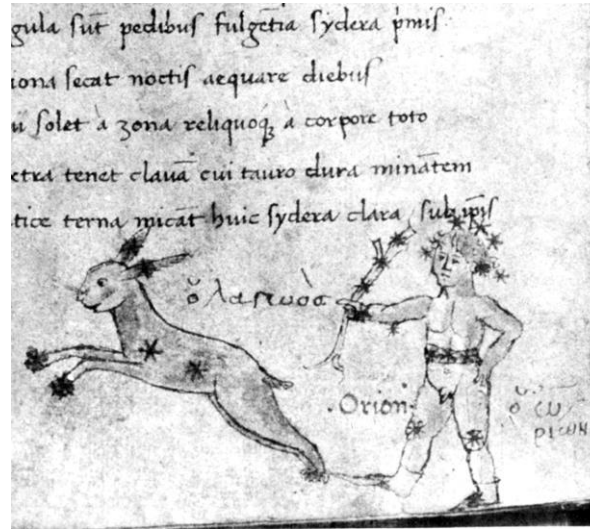 gula sūt pedibus fulgētia sydera p̄mis
iona secat noctis aequare diebus
u solet à zona reliquoq; à corpore toto
etra tenet clavā cui tauro dura minātem
tice terna micāt huic sydera clara sub ip̄is
ὁ λαγωὸσ
·Orion·
ὁ ὠ
ριων